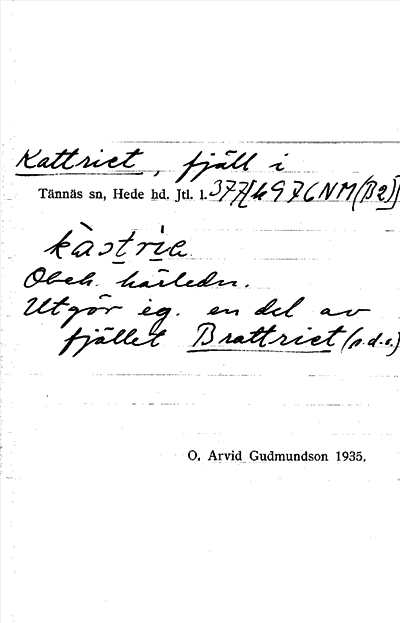 Kattriet, fjäll i
Tännäs sn, Hede hd. Jtl. l. 377[h976NM(B2)]
kàstriɛ
Obek. härledn.
Utgör eg. en del av
fjället Brattriet (s.d.o.)
O. Arvid Gudmundson 1935.